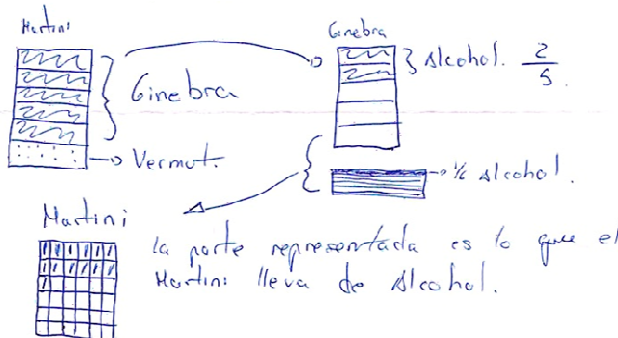 Martini
Ginebra
Ginebra
Alcohol. 2/5.
→ Vermut.
→ 1/6 Alcohol.
Martini
la parte representada es lo que el
Martini lleva de Alcohol.